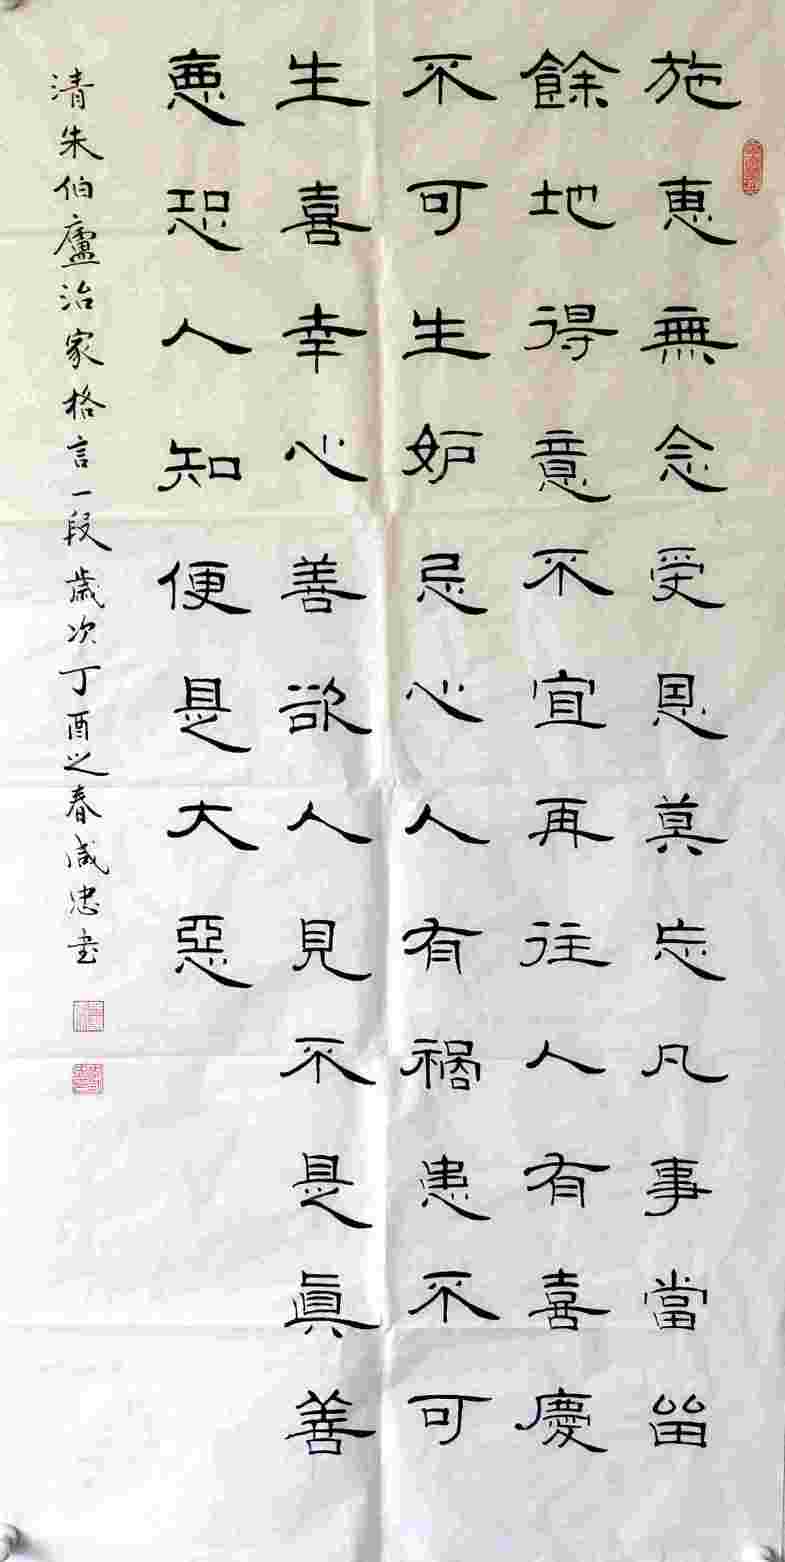 施惠無念受恩莫忘凡事當留
餘地得意不宜再往人有喜慶
不可生妒忌心人有禍患不可
生喜幸心善欲人見不是眞善
惡恐人知便是大惡
清朱伯廬治家格言一段歲次丁酉之春咸忠书